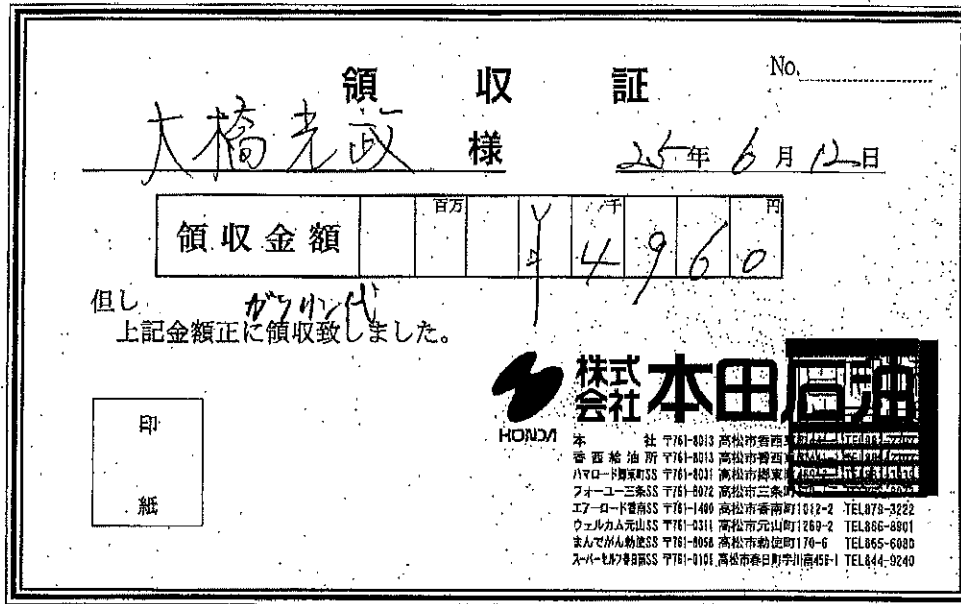 領収証
No.
大橋光政 様
25年6月12日
領収金額 百万 ¥ 千 円 4960
但し ガソリン代
上記金額正に領収致しました。
印
紙
HONDA
株式会社 本田石油
本 社 〒761-8013 高松市香西
香西給油所 〒761-8013 高松市香西
ハマロード郷東町SS 〒761-8031 高松市郷東
フォーユー三条SS 〒761-8072 高松市三条町
エアーロード香南SS 〒761-1400 高松市香南町1012-2 TEL879-3222
ウェルカム元山SS 〒761-0311 高松市元山町1260-2 TEL866-8901
まんでがん勅使SS 〒761-8058 高松市勅使町170-6 TEL865-6080
スーパーセルフ春日南SS 〒761-0101 高松市春日町字川南456-1 TEL844-9240